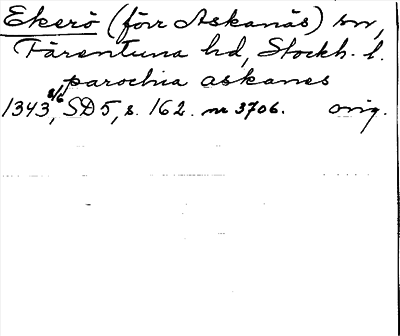 Ekerö (förr Askanäs) sn,
Färentuna hd, Stockh. l.
parochia askanes
1343 8/6, SD 5, s. 162. nr 3706. orig.